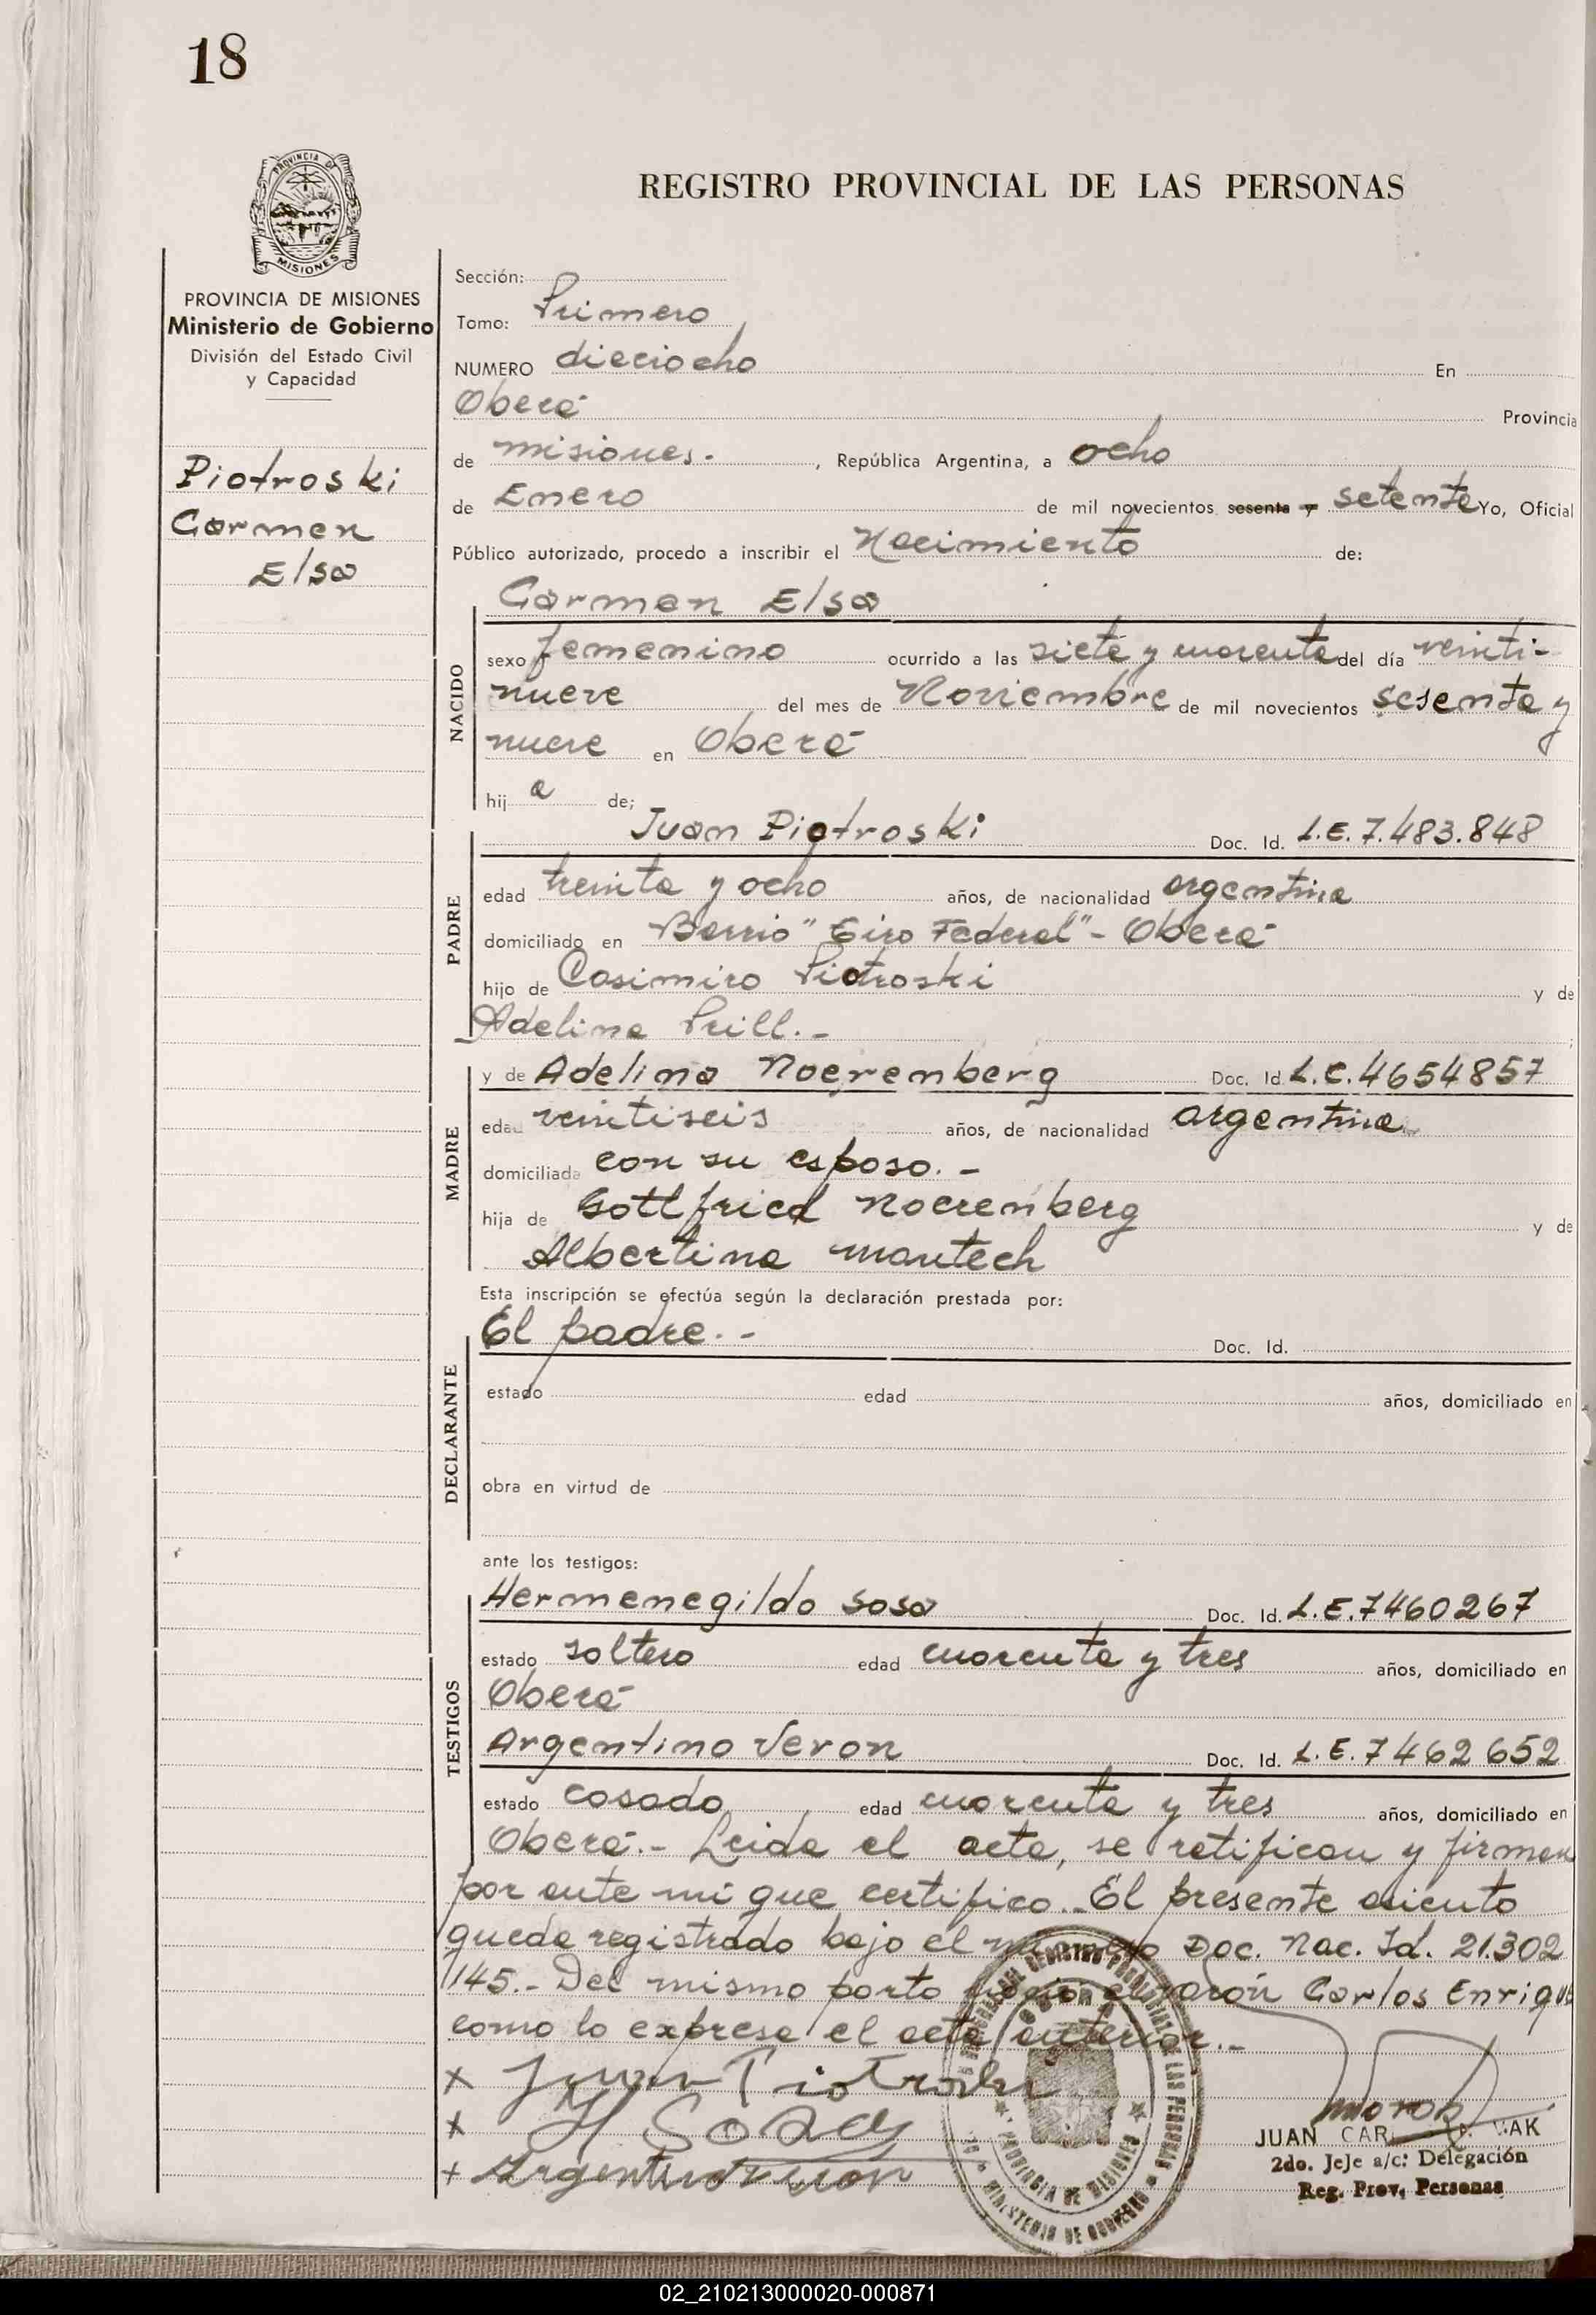 18
PROVINCIA DE
MISIONES
REGISTRO PROVINCIAL DE LAS PERSONAS
PROVINCIA DE MISIONES
Ministerio de Gobierno
División del Estado Civil
y Capacidad
Piotroski
Carmen
Elsa
Sección:
Tomo: Primero
NUMERO dieciocho En
Oberá Provincia
de misiones. , República Argentina, a ocho
de Enero de mil novecientos sesenta y setenta Yo, Oficial
Público autorizado, procedo a inscribir el Nacimiento de:
Carmen Elsa
NACIDO
sexo femenino ocurrido a las siete y cuarenta del día veinti-
nueve del mes de Noviembre de mil novecientos sesenta y
nueve en Oberá
hij a de;
Juan Piotroski Doc. Id. L.E. 7.483.848
PADRE
edad treinta y ocho años, de nacionalidad argentina
domiciliado en Barrio "Tiro Federal" - Oberá
hijo de Casimiro Piotroski y de
Adelina Prill. -
MADRE
y de Adelina Noerenberg Doc. Id. L.C. 4654857
edad veintiseis años, de nacionalidad argentina
domiciliada con su esposo. -
hija de Gottfried Noerenberg y de
Albertina Mantech
Esta inscripción se efectúa según la declaración prestada por:
El padre. - Doc. Id.
DECLARANTE
estado edad años, domiciliado en
obra en virtud de
ante los testigos:
TESTIGOS
Hermenegildo Sosa Doc. Id. L.E. 7460267
estado soltero edad cuarenta y tres años, domiciliado en
Oberá
Argentino Veron Doc. Id. L.E. 7462652
estado casado edad cuarenta y tres años, domiciliado en
Oberá.- Leida el acta, se ratifican y firman
por ante mi que certifico.. El presente asiento
queda registrado bajo el numero Doc. Nac. Id. 21.302
145.- Del mismo parto varón Carlos Enrique
como lo expresa el acta anterior.-
x Juan Piotroski
x H Sosa
+ Argentino Veron
PROVINCIA DE MISIONES
MINISTERIO DE GOBIERNO
JUAN CAR VAK
2do. JeJe a/c: Delegación
Reg. Prov. Personas
02_210213000020-000871